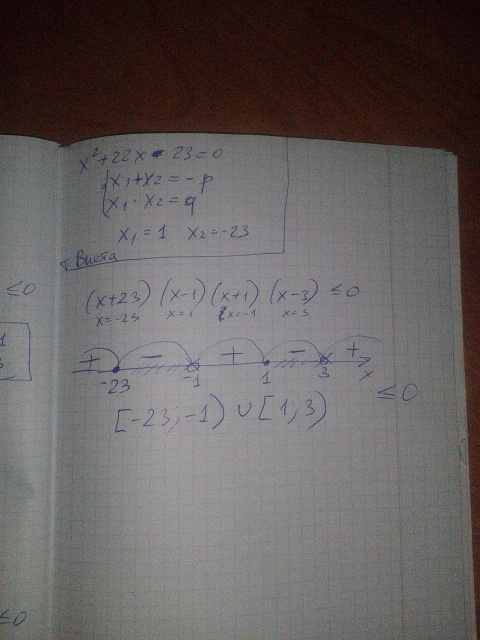 x² + 22x - 23 = 0
x₁ + x₂ = -p
x₁ · x₂ = q
x₁ = 1 x₂ = -23
Виета
≤ 0
(x+23) (x-1) (x+1) (x-3) ≤ 0
x=-23 x=1 x=-1 x=3
+ - + - +
-23 -1 1 3 x
≤ 0
[-23; -1) ∪ [1; 3)
≤ 0